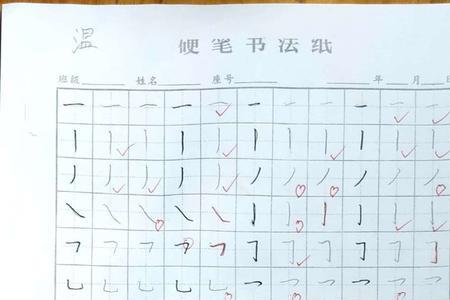 温
硬笔书法纸
班级 姓名 座号 年 月 日